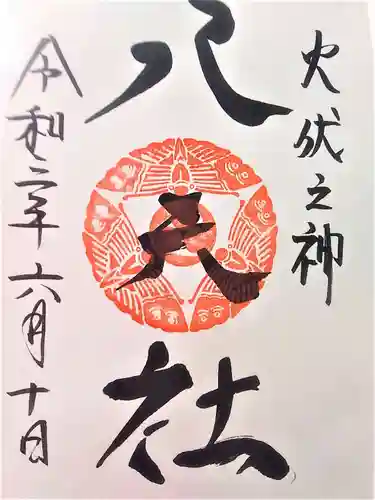 火伏之神
八天社
令和二年六月十日